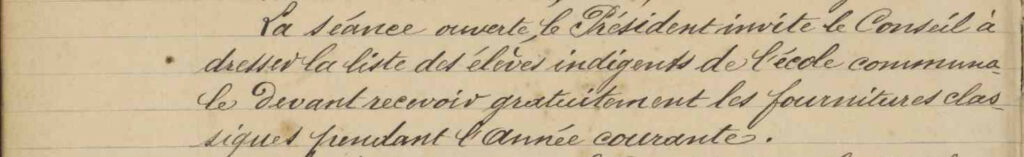 La séance ouverte, le Président invite le Conseil à
dresser la liste des élèves indigents de l'école communa-
le devant recevoir gratuitement les fournitures clas-
siques pendant l'Année courante.